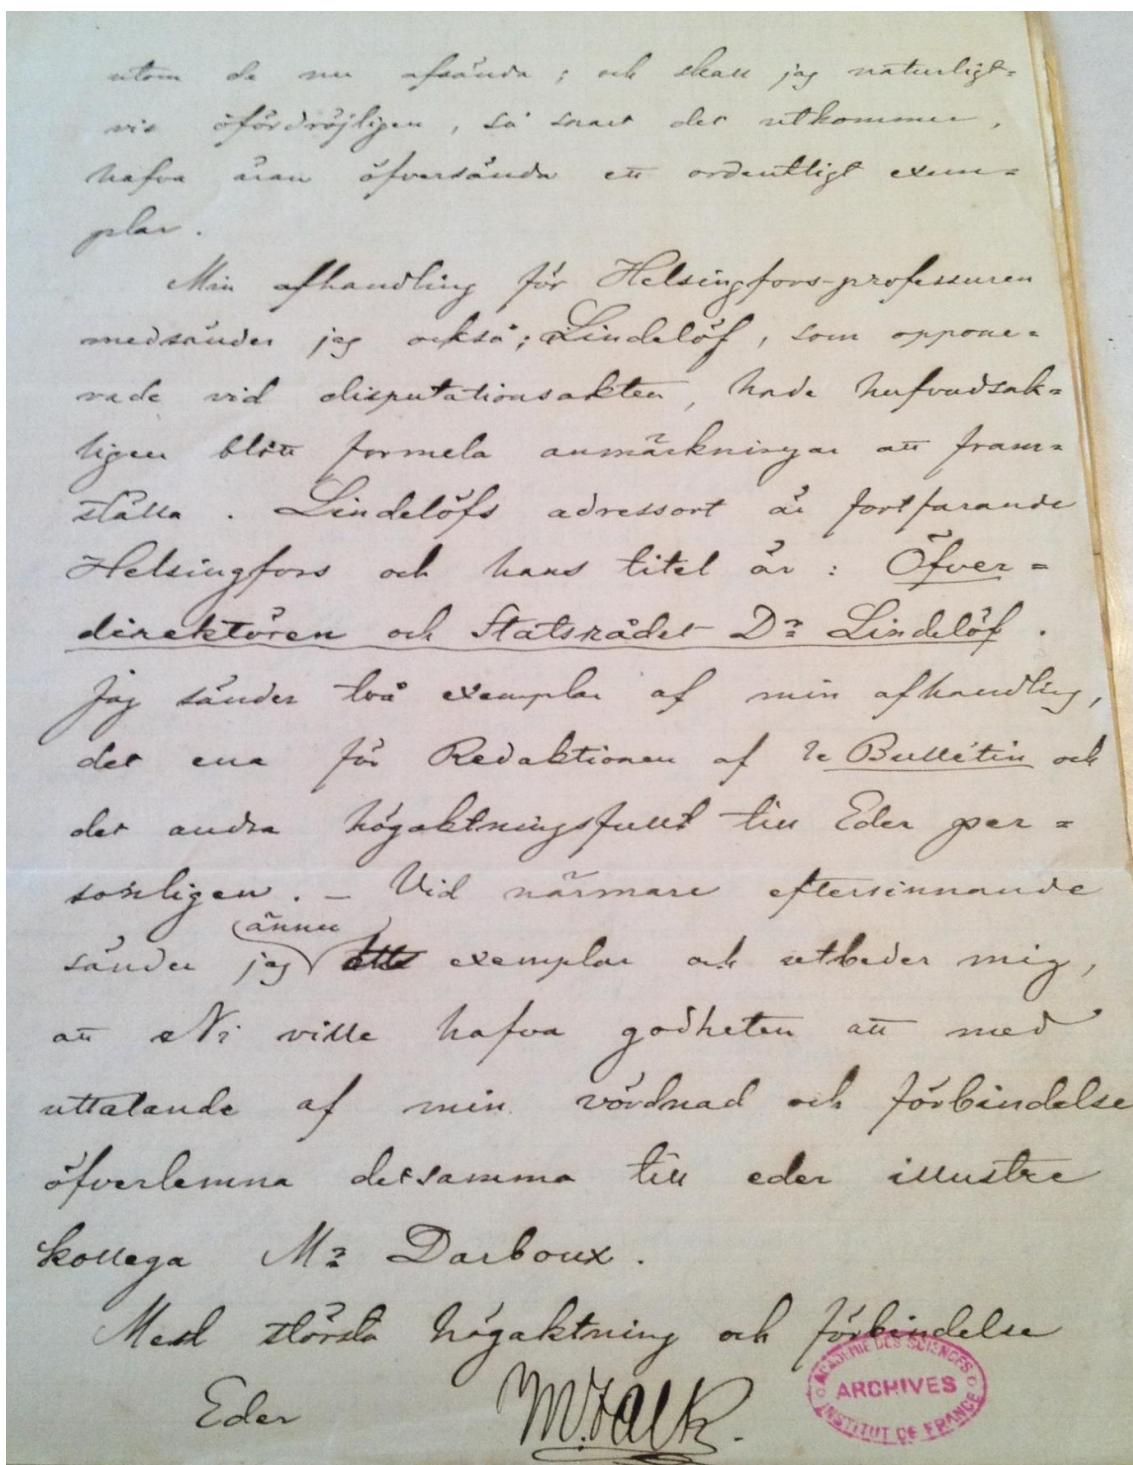 utom de nu afsända; och skall jag naturligt=
vis ofördröjligen, så snart det utkommer,
hafva äran öfversända ett ordentligt exem=
plar.
Min afhandling för Helsingfors-professuren
medsänder jag också; Lindelöf, som oppone=
rade vid disputationsakten, hade hufvudsak=
ligen blott formela anmärkningar att fram=
ställa. Lindelöfs adressort är fortfarande
Helsingfors och hans titel är: Öfver=
direktören och Statsrådet Dr Lindelöf.
Jag sänder två exemplar af min afhandling,
det ena för Redaktionen af le Bullétin och
det andra högaktningsfullt till Eder per=
sonligen. – Vid närmare eftersinnande
ännu
sänder jag exemplar och utbeder mig,
att Ni ville hafva godheten att med
uttalande af min vördnad och förbindelse
öfverlemna detsamma till eder illustre
kollega Mr Darboux.
Med största högaktning och förbindelse
Eder M. Falk.
ACADEMIE DES SCIENCES
ARCHIVES
INSTITUT DE FRANCE